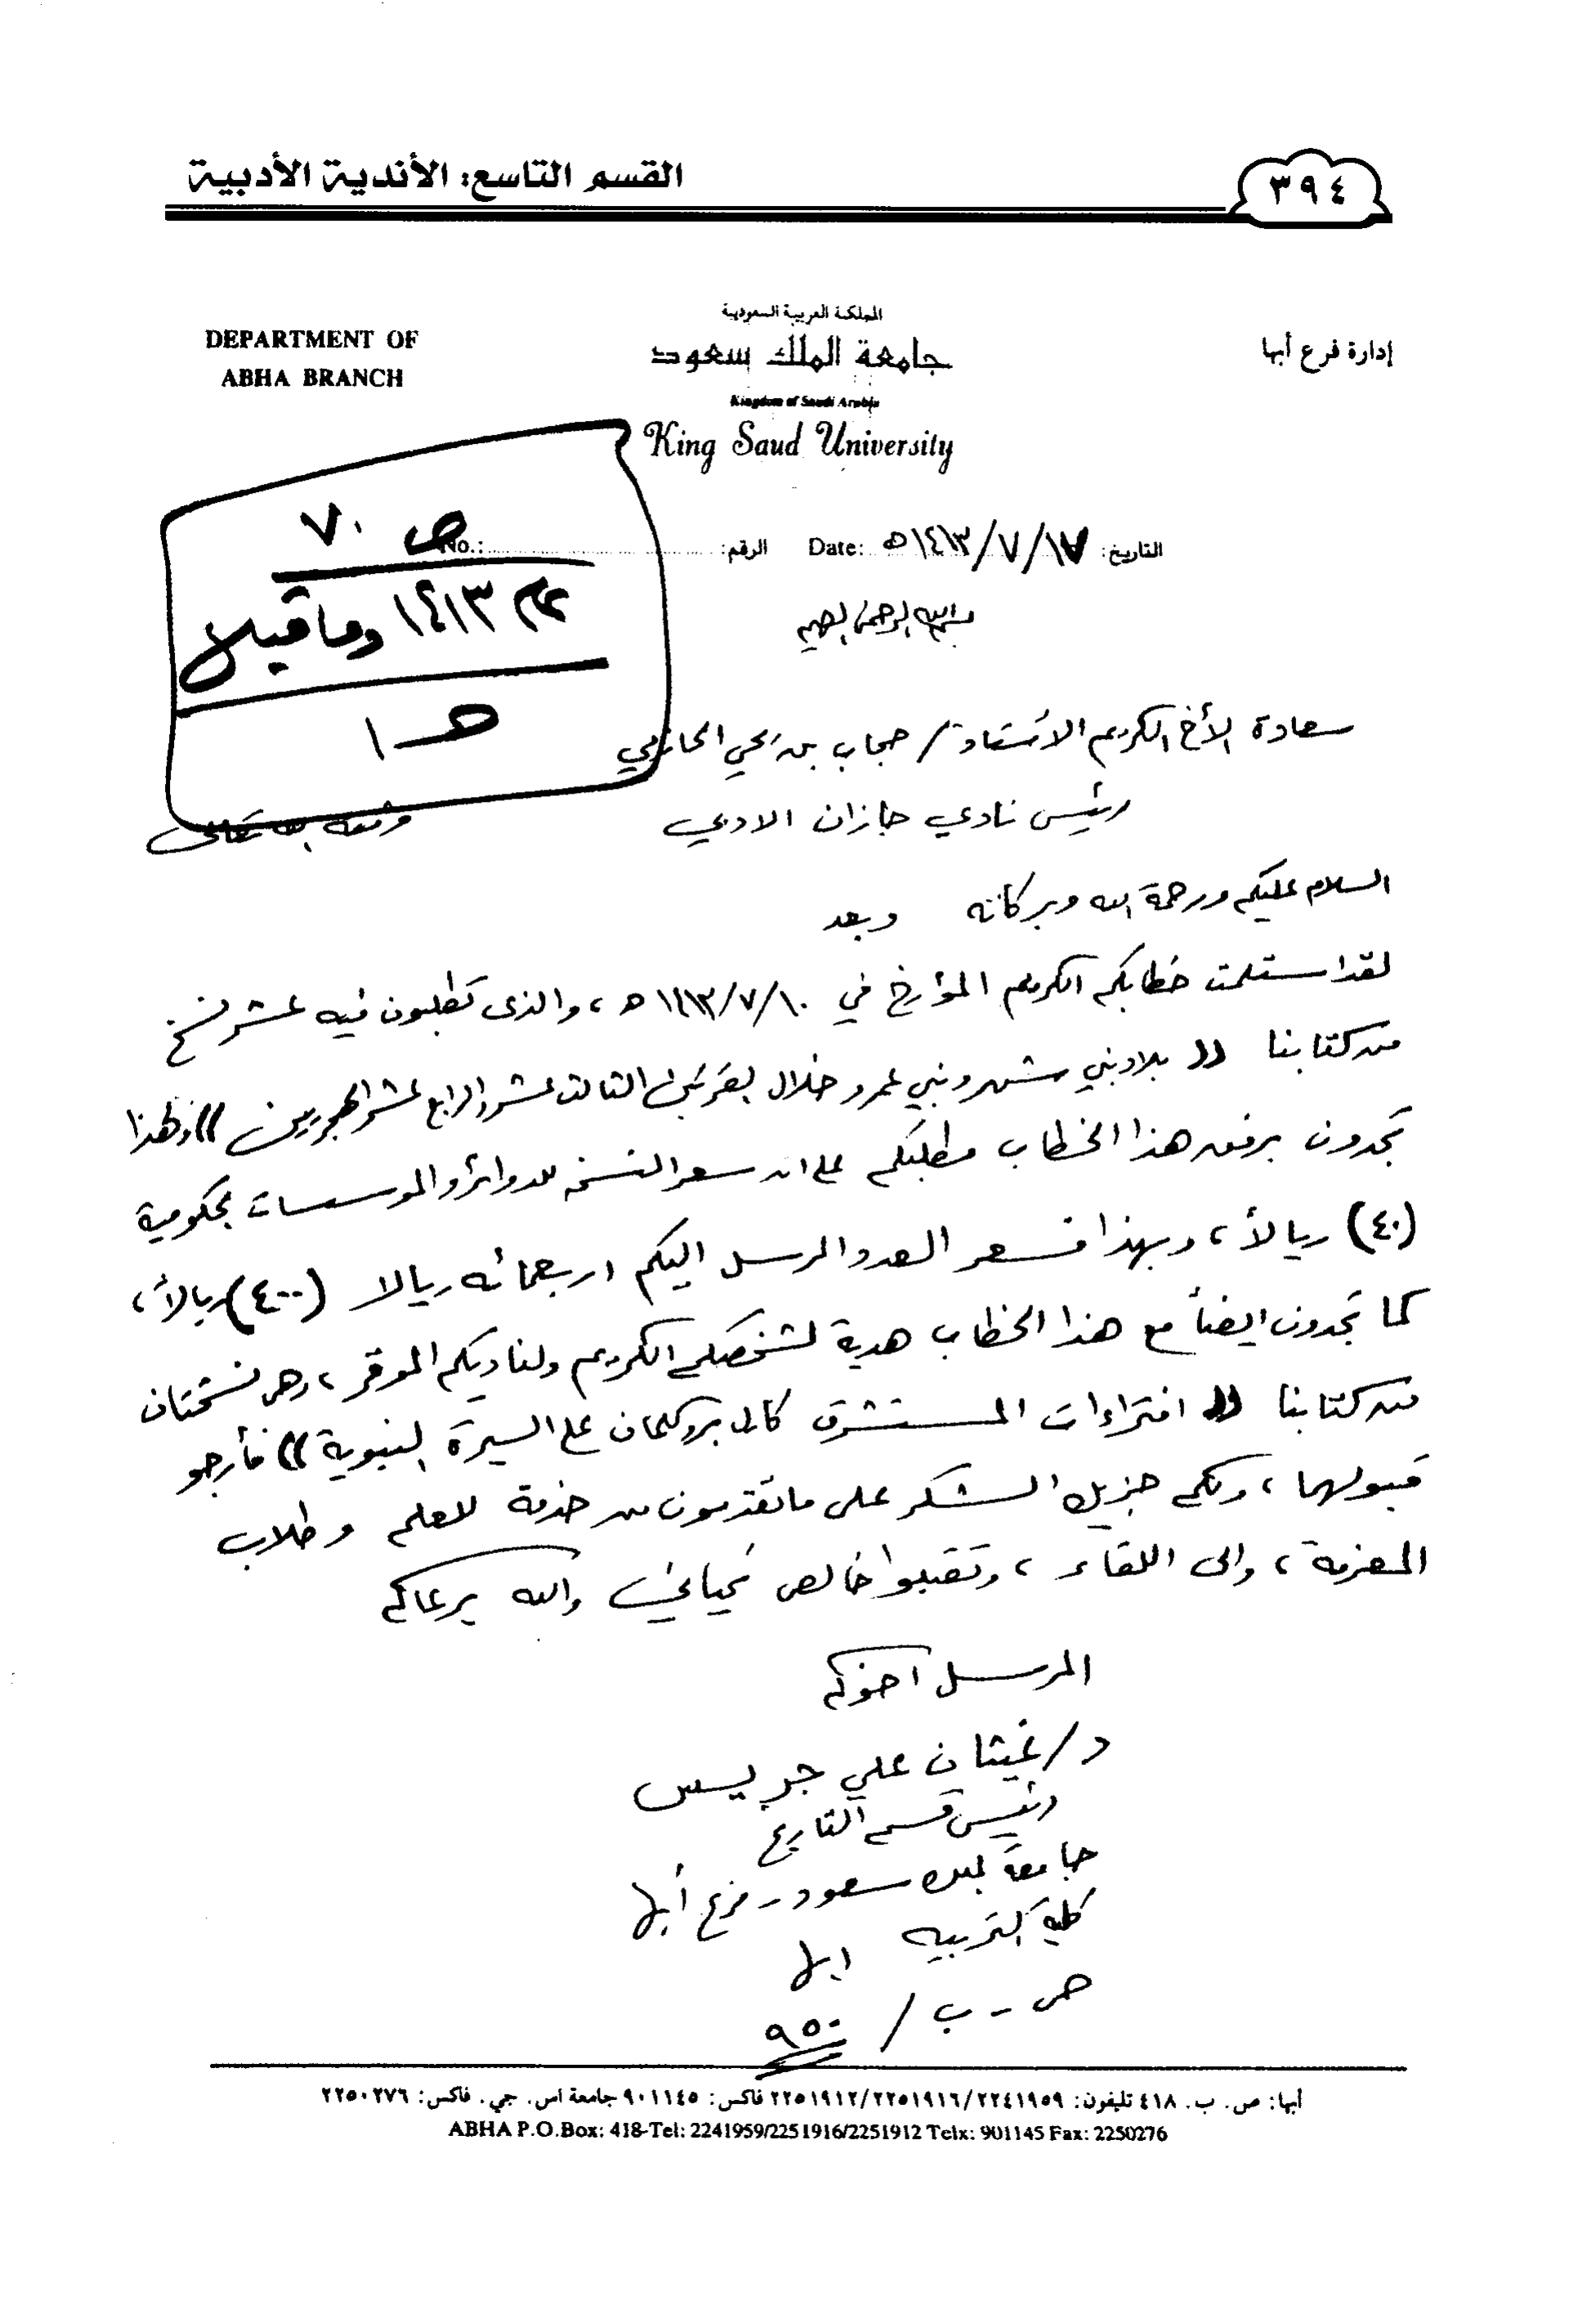 القسم التاسع: الأندية الأدبية
٣٩٤
المملكة العربية السعودية
DEPARTMENT OF
ABHA BRANCH
جامعة الملك سعود
إدارة فرع أبها
Kingdom of Saudi Arabia
King Saud University
التاريخ: ١٧/٧/١٤١٣هـ Date: الرقم: No.:
ص ٧٠
عام ١٤١٣ وما قبلا
هـ ١
بسم الله الرحمن الرحيم
سعادة الأخ الكريم الاستاذ / حجاب بن يحي الحازمي
رئيس نادي جازان الادبي وفقه الله تعالى
السلام عليكم ورحمة الله وبركاته وبعد
لقد استلمت خطابكم الكريم المؤرخ في ١٠/٧/١٤١٣ هـ ، والذى تطلبون فيه عشر نسخ
من كتابنا (( بلاد بني شهر وبني عمرو خلال القرنين الثالث عشر والرابع عشر الهجريين )) ولهذا
تجدون برفقه هذا الخطاب مطلبكم على ان سعر النسخه للدوائر والمؤسسات الحكومية
(٤٠) ريالاً ، وبهذا فسعر العدد المرسل اليكم اربعمائه ريالا (٤٠٠) ريالاً ،
كما تجدون ايضاً مع هذا الخطاب هدية لشخصكم الكريم ولناديكم الموقر ، وهى نسختان
من كتابنا (( افتراءات المستشرق كارل بروكلمان على السيرة النبوية )) فأرجو
قبولهما ، ولكم جزيل الشكر على ما تقدمون من خدمة للعلم وطلاب
المعرفة ، والى اللقاء ، وتقبلوا خالص تحياتي والله يرعاكم
المرسل اخوكم
د/ غيثان علي جريس
رئيس قسم التاريخ
جامعة الملك سعود - فرع أبها
كلية التربيه ابها
ص - ب / ٩٥٠
أبها: ص. ب. ٤١٨ تليفون: ٢٢٤١٩٥٩/٢٢٥١٩١٦/٢٢٥١٩١٢ فاكس: ٩٠١١٤٥ جامعة اس. جي. فاكس: ٢٢٥٠٢٧٦
ABHA P.O.Box: 418-Tel: 2241959/2251916/2251912 Telx: 901145 Fax: 2250276